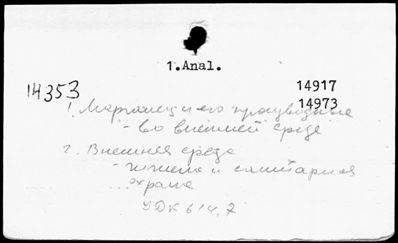 1.Anal.
14353
14917
14973
1. Марганец и его производные
- во внешней среде
2. Внешняя среда
- гигиена и санитарная
охрана
УДК 614.7